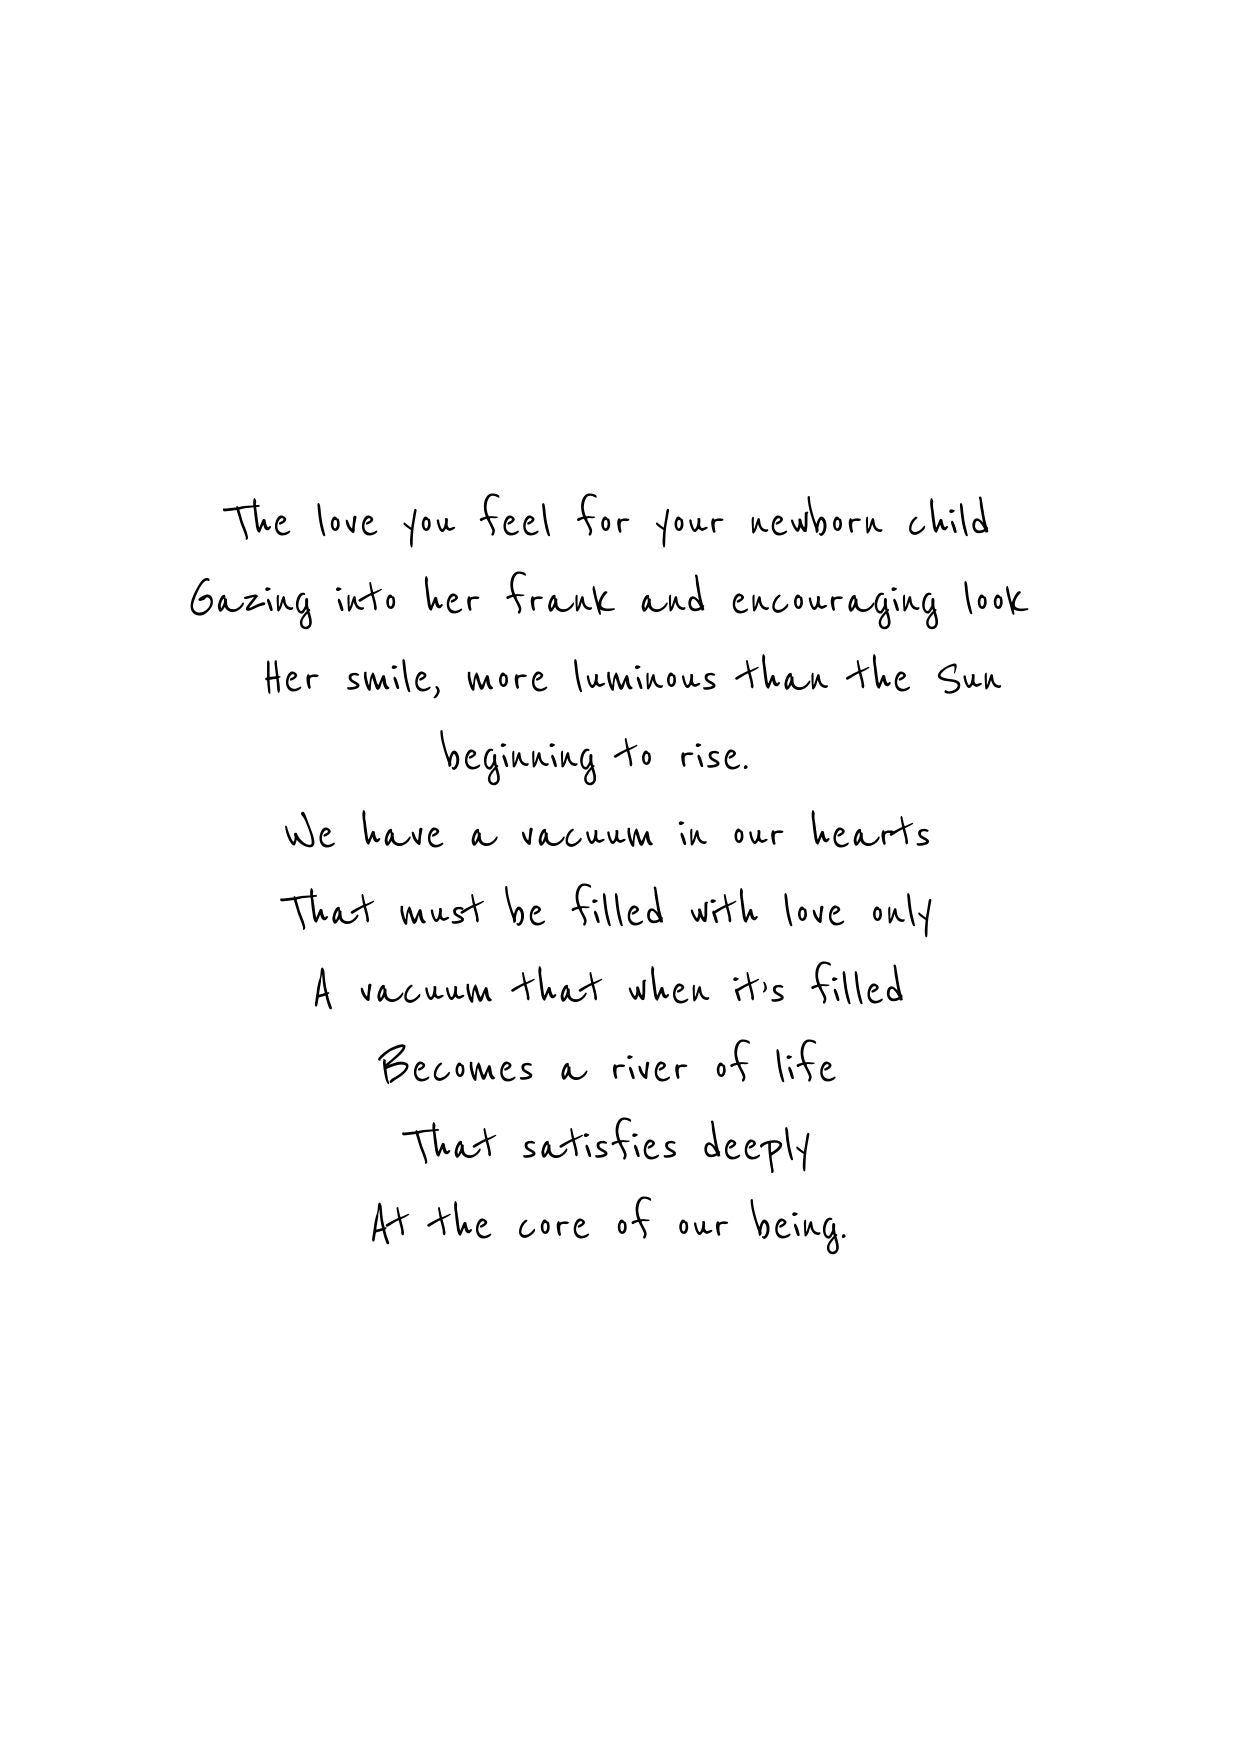 The love you feel for your newborn child
Gazing into her frank and encouraging look
Her smile, more luminous than the Sun
beginning to rise.
We have a vacuum in our hearts
That must be filled with love only
A vacuum that when it's filled
Becomes a river of life
That satisfies deeply
At the core of our being.